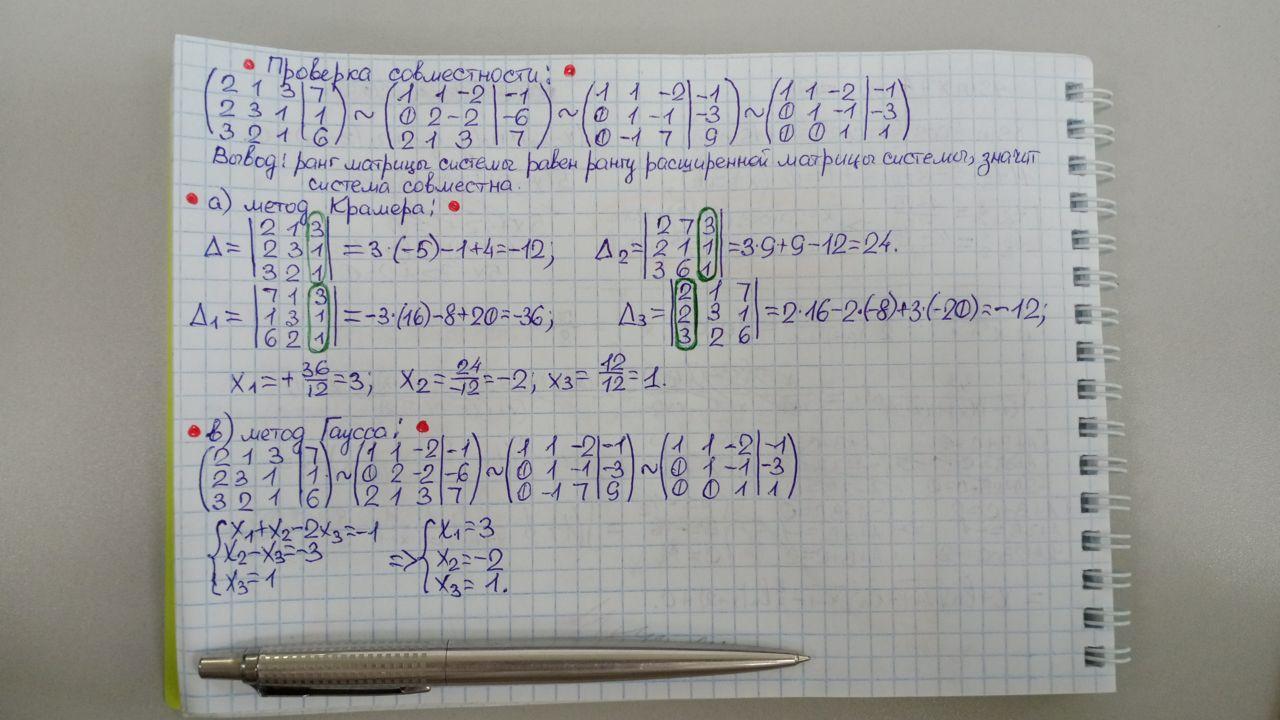 Проверка совместности:
(2 1 3 | 7; 2 3 1 | 1; 3 2 1 | 6) ~ (1 1 -2 | -1; 0 2 -2 | -6; 2 1 3 | 7) ~ (1 1 -2 | -1; 0 1 -1 | -3; 0 -1 7 | 9) ~ (1 1 -2 | -1; 0 1 -1 | -3; 0 0 1 | 1)
Вывод: ранг матрицы системы равен рангу расширенной матрицы системы, значит
система совместна.
а) метод Крамера:
Δ= |2 1 3; 2 3 1; 3 2 1| = 3·(-5)-1+4=-12; Δ2= |2 7 3; 2 1 1; 3 6 1| =3·9+9-12=24.
Δ1= |7 1 3; 1 3 1; 6 2 1| =-3·(16)-8+20=-36; Δ3= |2 1 7; 2 3 1; 3 2 6| =2·16-2·(-8)+3·(-20)=-12;
x1=+36/12=3; x2=24/-12=-2; x3=12/12=1.
в) метод Гаусса:
(2 1 3 | 7; 2 3 1 | 1; 3 2 1 | 6) ~ (1 1 -2 | -1; 0 2 -2 | -6; 2 1 3 | 7) ~ (1 1 -2 | -1; 0 1 -1 | -3; 0 -1 7 | 9) ~ (1 1 -2 | -1; 0 1 -1 | -3; 0 0 1 | 1)
{x1+x2-2x3=-1 {x1=3
x2-x3=-3 => x2=-2
x3=1 x3=1.